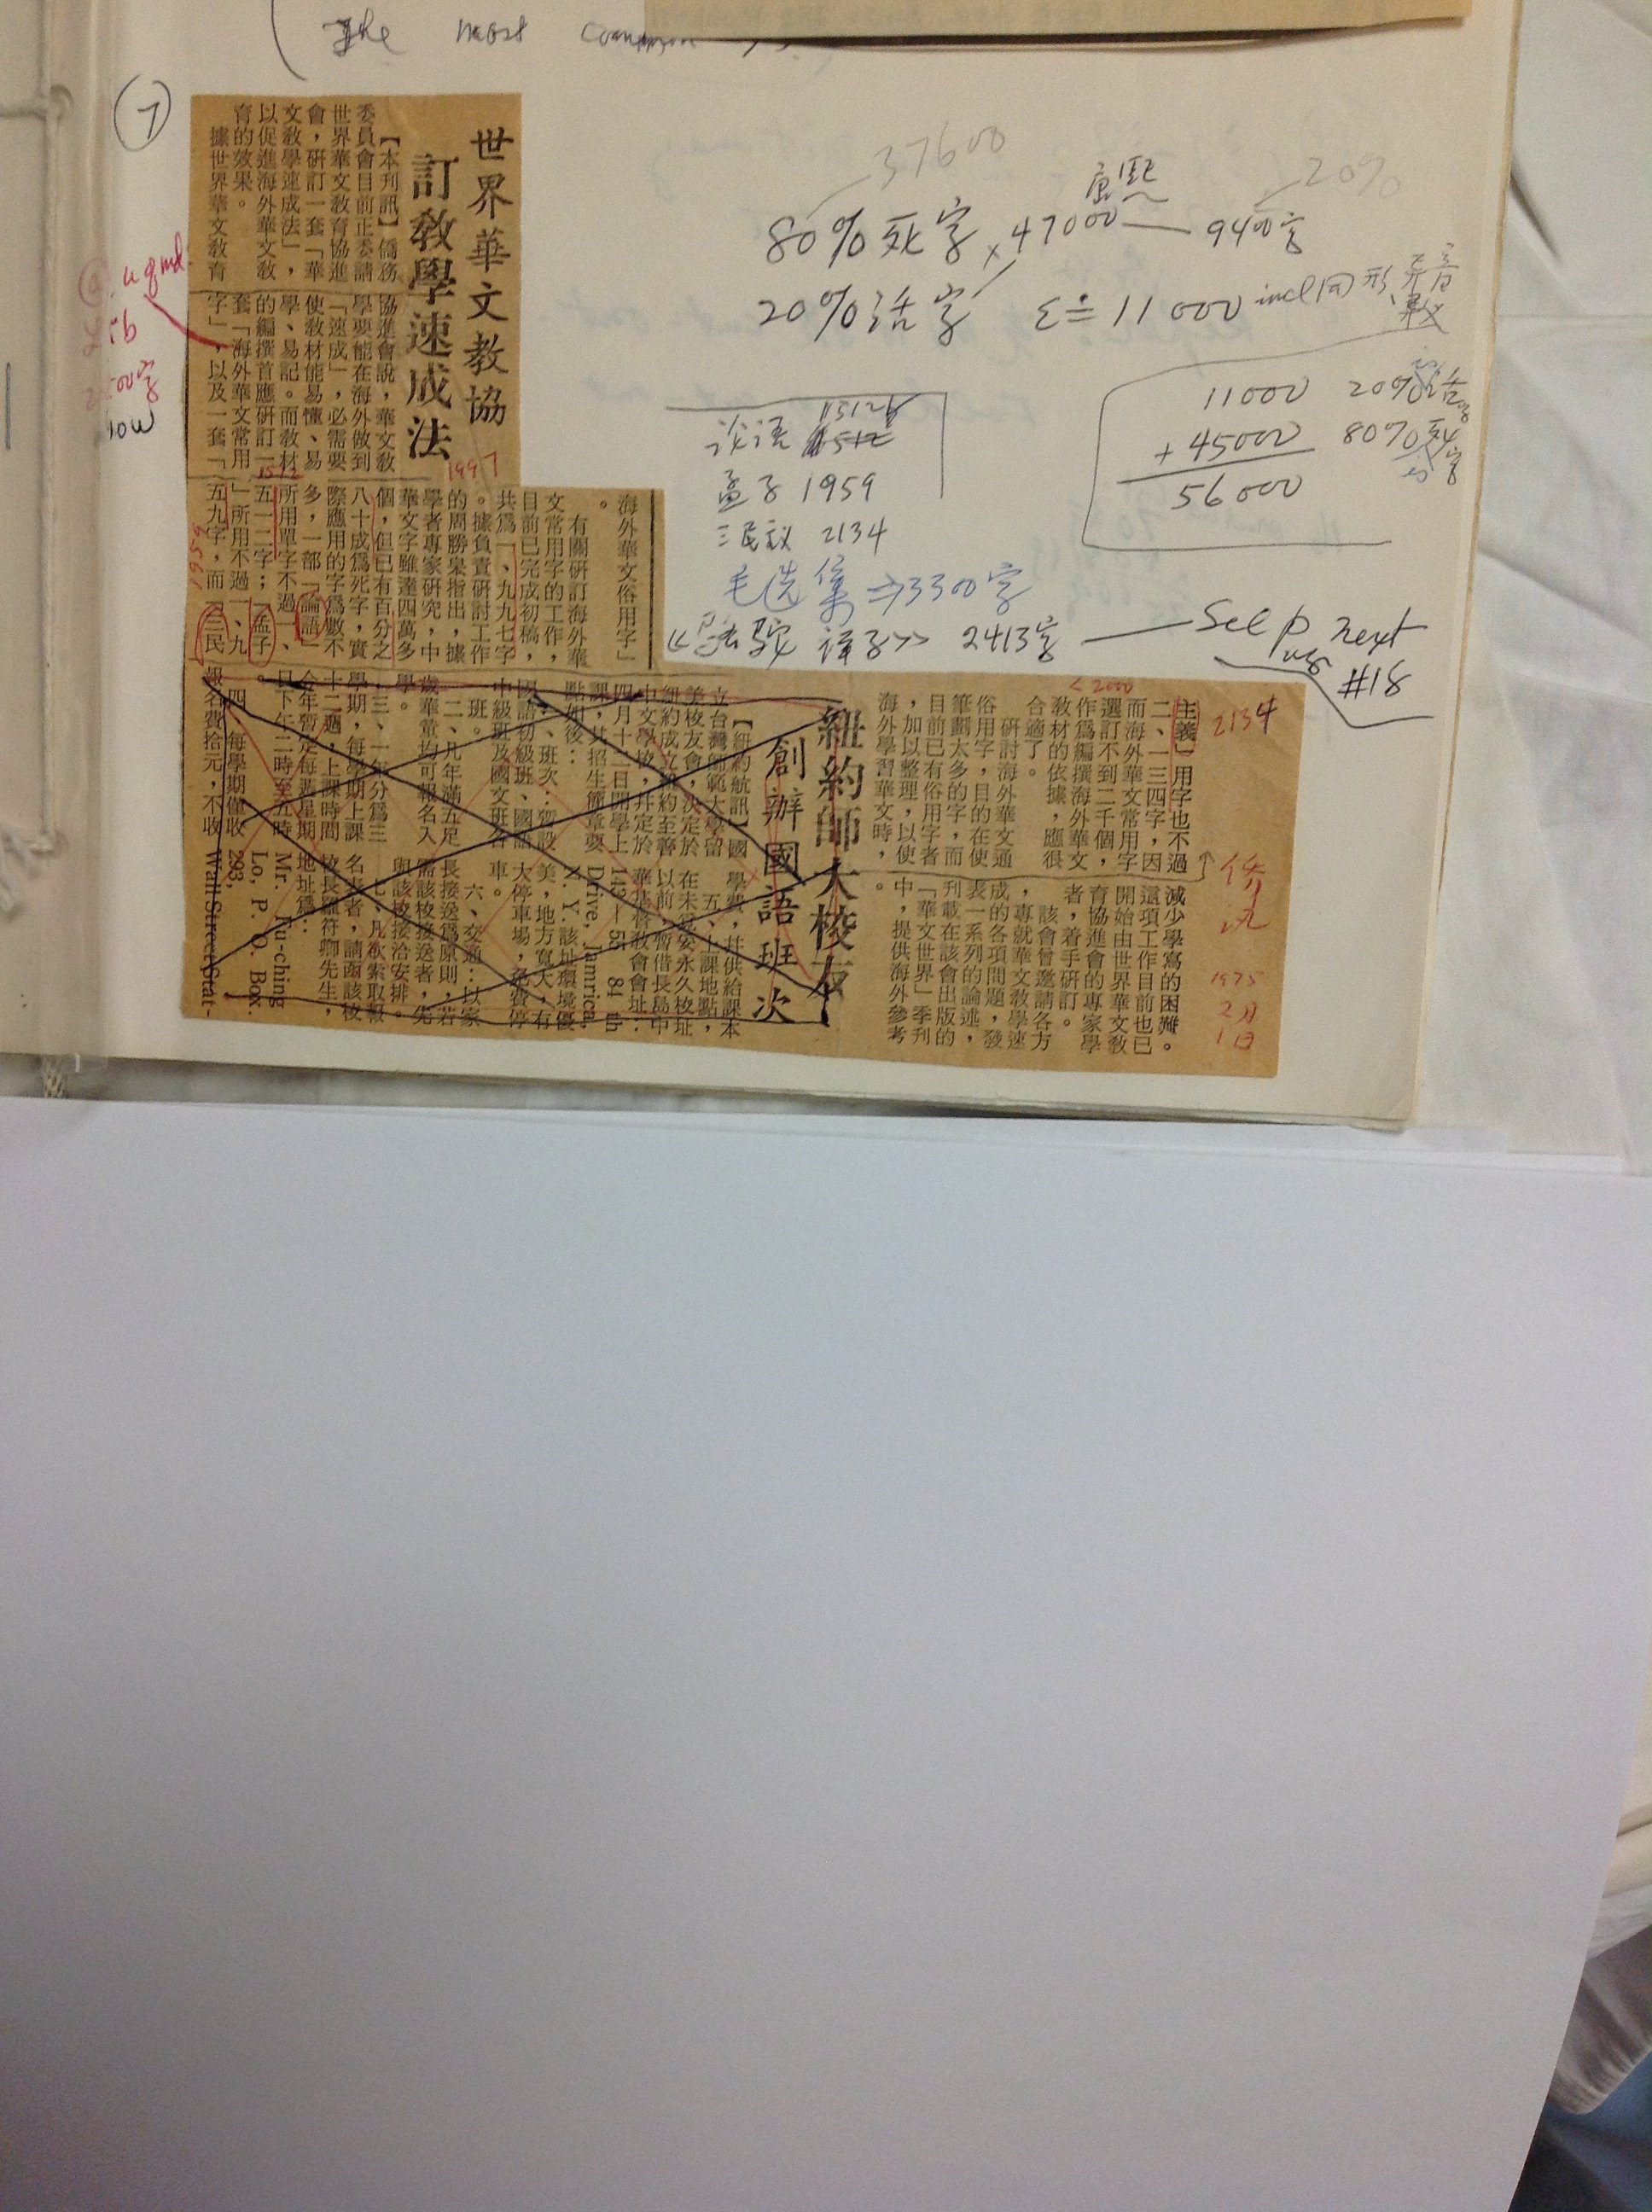 The most common
7
世界華文教協
訂教學速成法
【本刊訊】僑務
委員會目前正委請
世界華文教育協進
會，研訂一套「華
文教學速成法」，
以促進海外華文教
育的效果。
據世界華文教育
協進會說，華文教
學要能在海外做到
「速成」，必需要
使教材能易懂、易
學、易記。而教材
的編撰首應研訂一
套「海外華文常用
字」，以及一套「
海外華文俗用字」
。
有關研訂海外華
文常用字的工作，
目前已完成初稿，
共為一、九九七字
。據負責研討工作
的周勝杲指出，據
學者專家研究，中
華文字雖達四萬多
個，但已有百分之
八十成為死字，實
際應用的字為數不
多，一部「論語」
所用單字不過一、
五一二字；「孟子
」所用不過一、九
五九字，而「三民
主義」用字也不過
二、一三四字，因
而海外華文常用字
選訂不到二千個，
作為編撰海外華文
教材的依據，應很
合適了。
研討海外華文通
俗用字，目的在使
筆劃太多的字，而
目前已有俗用字者
，加以整理，以使
海外學習華文時，
減少學寫的困難。
這項工作目前也已
開始由世界華文教
育協進會的專家學
者，着手研訂。
該會曾邀請各方
，專就華文教學速
成的各項問題，發
表一系列的論述，
刊載在該會出版的
「華文世界」季刊
中，提供海外參考
。
紐約師大校友
創辦國語班次
【紐約航訊】國
立台灣師範大學留
美校友會，決定於
紐約成立紐約至善
中文學校，并定於
四月十二日開學上
課，其招生簡章要
點如後：
一、班次：暫設
國語初級班、國語
中級班及國文班各
一班。
二、凡年滿五足
歲華童均可報名入
學。
三、一年分為三
學期，每學期上課
十二週，上課時間
今年暫定每逢星期
日下午二時至五時
。
四、每學期僅收
報名費拾元，不收
學費，并供給課本
五、上課地點，
在未覓妥永久校址
以前，暫借長島中
華基督教會會址：
143—55 84 th
Drive, Jamrica,
N. Y.該址環境優
美，地方寬大，有
大停車場，免費停
車。
六、交通：以家
長接送為原則，若
需該校接送者，先
與該校接洽安排。
七、凡欲索取報
名表者，請函該校
校長羅符卿先生，
地址為：
Mr. Fu-ching
Lo, P. O. Box.
293,
Wall Street Stat-
1997
1512
1959
< 2000
2134
1975
2月
1日
37600
20%
康熙
80%死字 × 47000 — 9400字
20%活字 Σ≐11000 incl同形異音
11000 20%活字
+ 45000 80%死字
56000
论语 1512
孟子 1959
三民主义 2134
毛选集 ⇒ 3300字
《骆驼祥子》 2413字 — See p next
#18